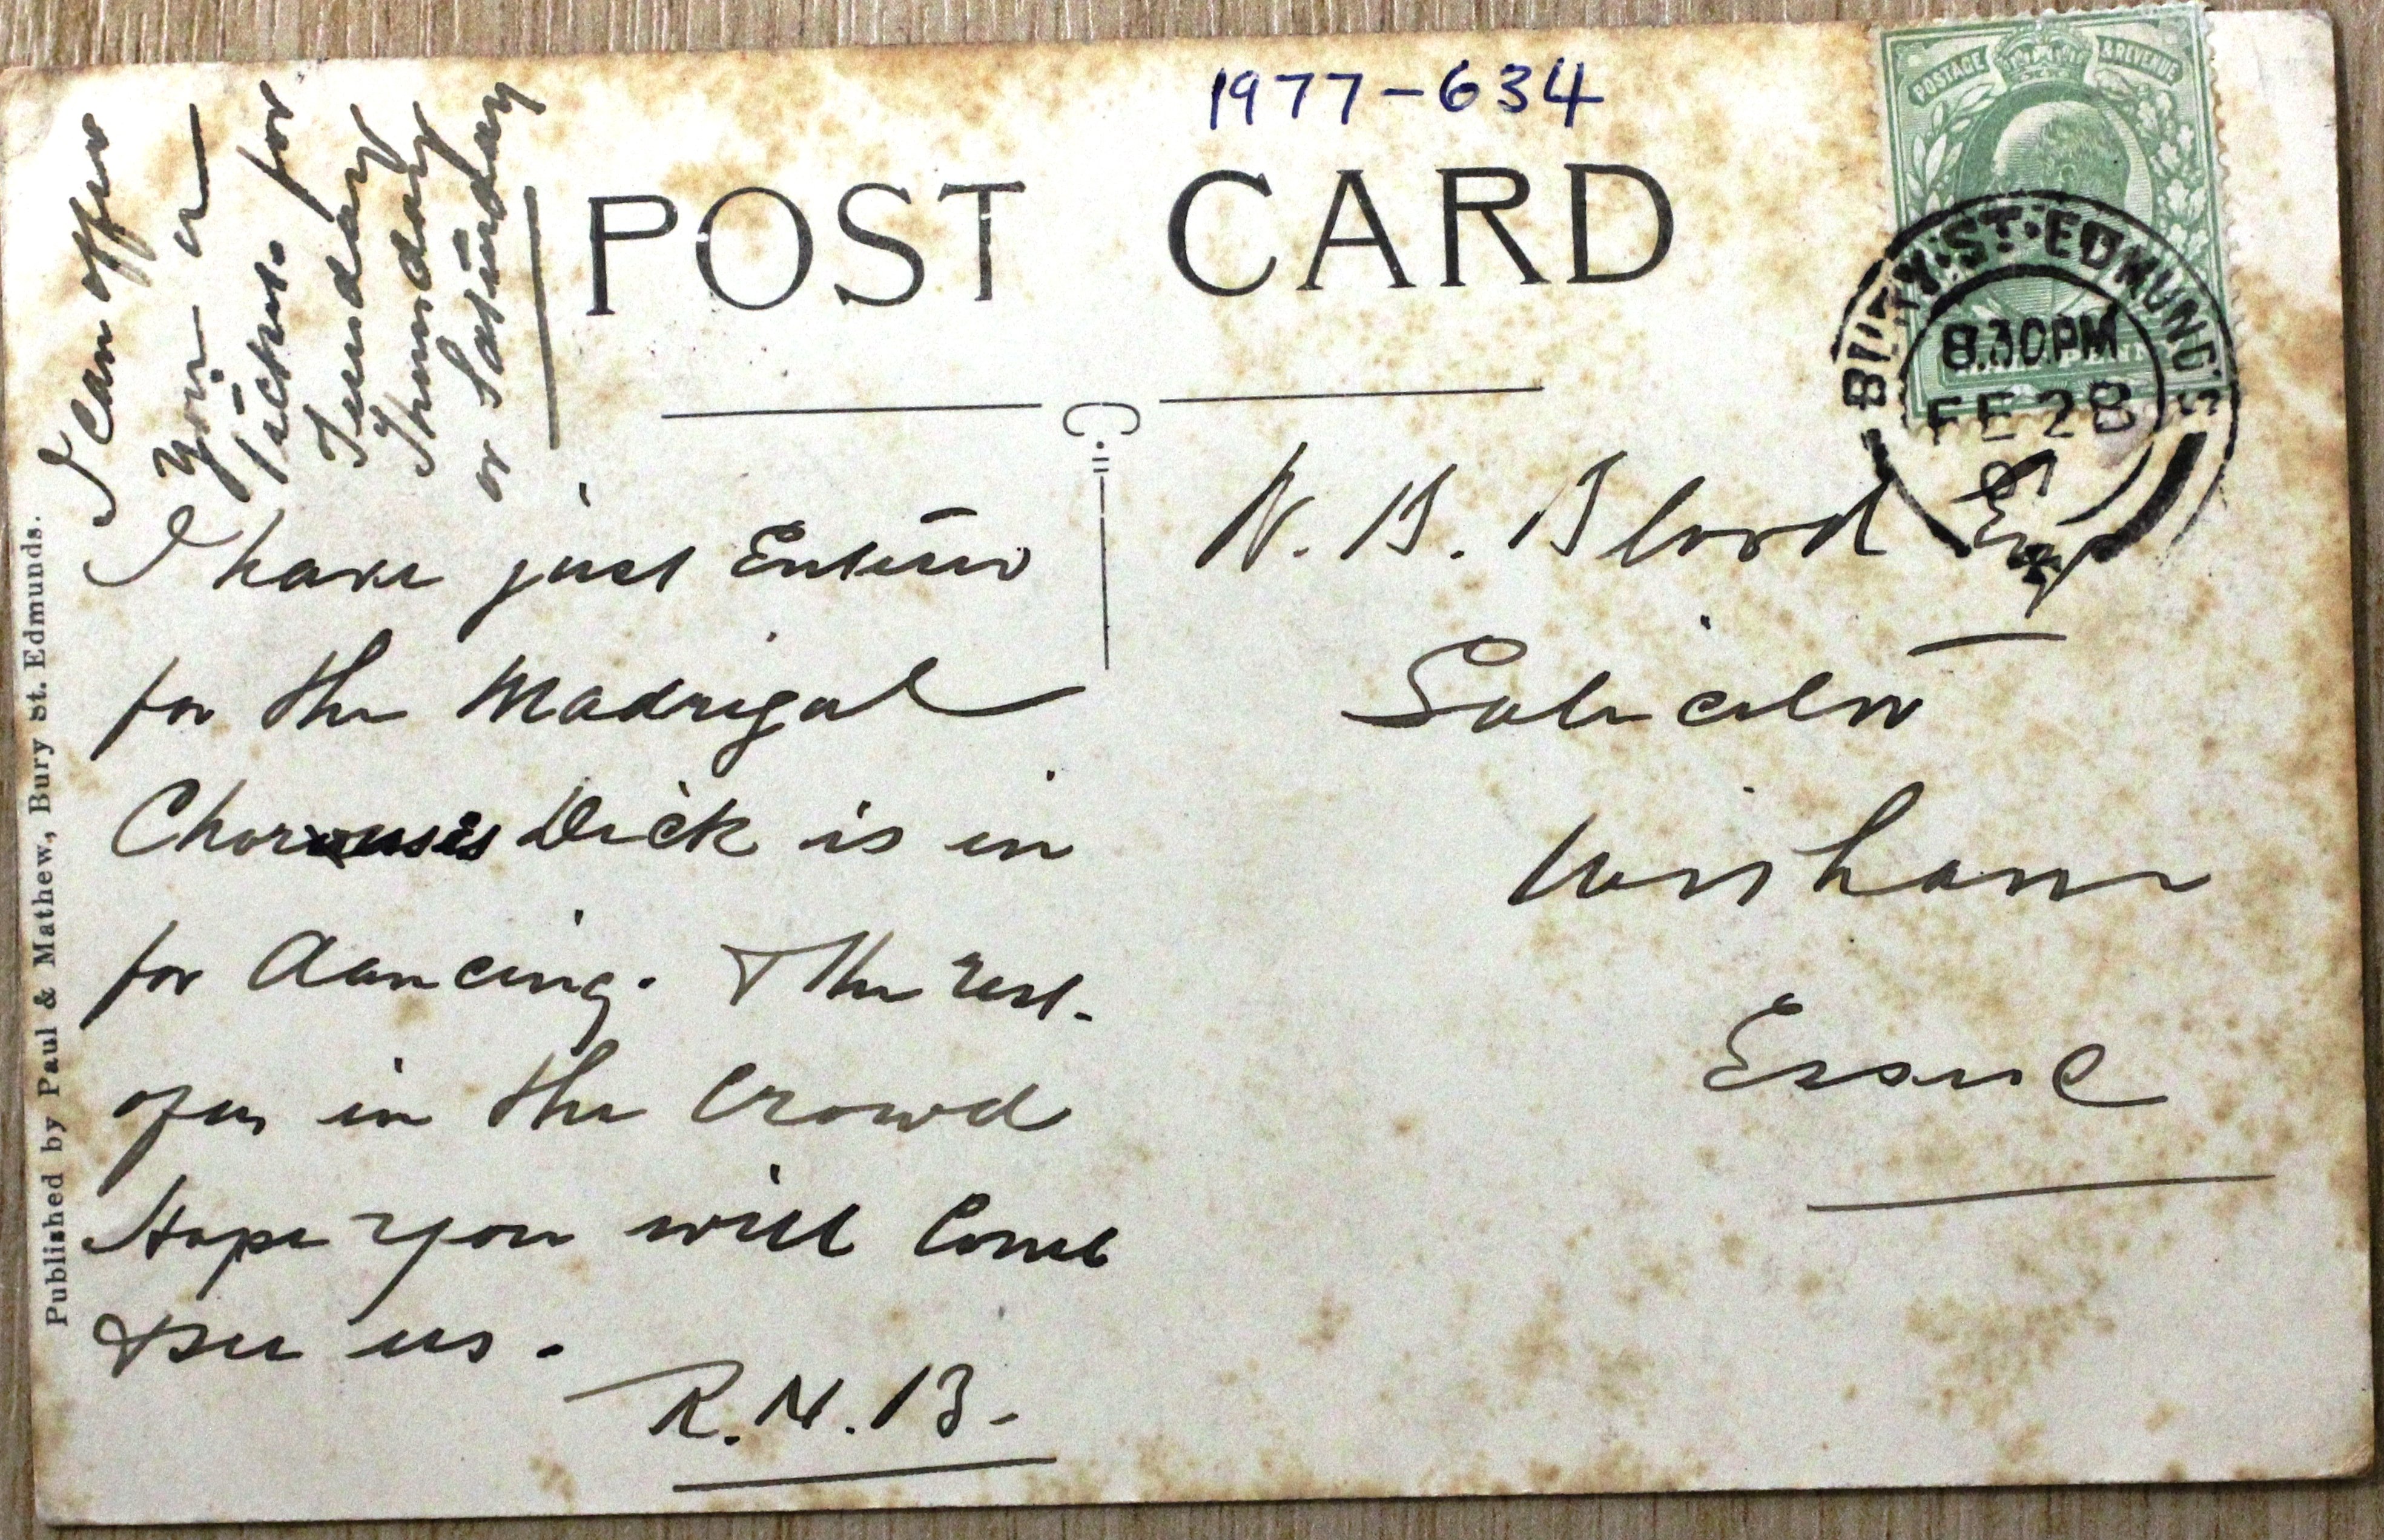 1977-634
POSTAGE & REVENUE
POST CARD
BURY·ST·EDMUNDS
8.30PM
FE 28
07
I can offer
you
tickets for
Tuesday
Thursday
or Saturday
I have just Entered
for the Madrigal
Choruses Dick is in
for dancing. The rest
of us in the Crowd
Hope you will Come
& see us.
R.N.B.
N. B. Blood Esq
Solicitor
Witham
Essex
Published by Paul & Mathew, Bury St. Edmunds.